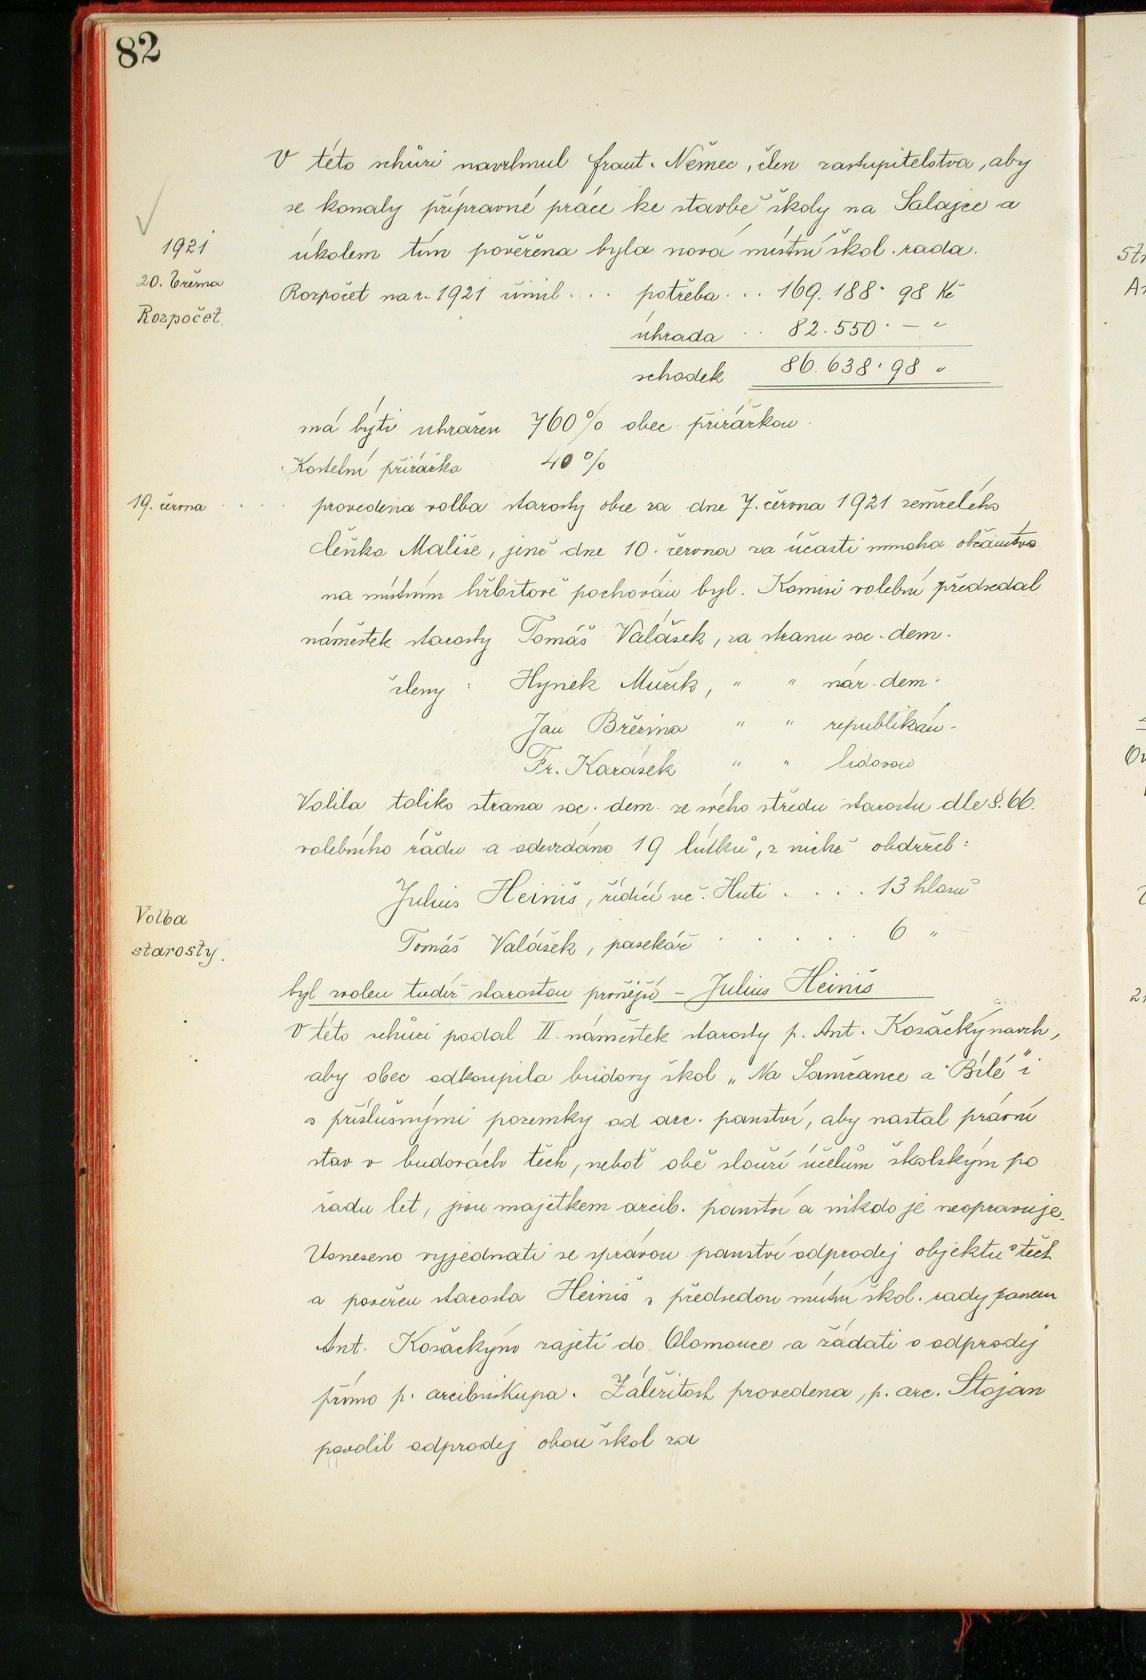 82
V této schůzi navrhnul frant. Němec, člen zastupitelstva, aby
se konaly přípravné práce ke stavbě školy na Salajce a
úkolem tím pověřena byla nová místní škol. rada.
1921
20. března
Rozpočet
Rozpočet na r. 1921 činil . . . potřeba . . . 169.188·98 Kč
úhrada . . 82.550·— "
schodek 86.638·98 "
má býti uhražen 760% obec. přirážkou.
Kostelní přirážka 40%
19. června . . . provedena volba starosty obce za dne 7. června 1921 zemřelého
Čeňka Mališe, jenž dne 10. června za účasti mnoha občanstva
na místním hřbitově pochován byl. Komisi volební předsedal
náměstek starosty Tomáš Valášek, za stranu soc. dem.
členy : Hynek Mužík, " " nár. dem.
Jan Březina " " republikán.
Fr. Karásek " " lidovou
Volila toliko strana soc. dem. ze svého středu starostu dle §. 66.
volebního řádu a odevzdáno 19 lístků, z nichž obdržel:
Julius Heiniš, řídící uč. Huti . . . . 13 hlasů
Volba
starosty.
Tomáš Valášek, pasekář . . . . . 6 "
byl zvolen tudíž starostou prvnější – Julius Heiniš
V této schůzi podal II. náměstek starosty p. Ant. Kosáčký návrh,
aby obec odkoupila budovy škol „Na Samčance a "Bílé" i
s příslušnými pozemky od arc. panství, aby nastal právní
stav v budovách těch, neboť obě slouží účelům školským po
řadu let, jsou majetkem arcib. panství a nikdo je neopravuje.
Usneseno vyjednati se správou panství odprodej objektů těch
a pověřen starosta Heiniš s předsedou místní škol. rady panem
Ant. Kosáčkým zajeti do Olomouce a žádati o odprodej
přímo p. arcibiskupa. Záležitost provedena, p. arc. Stojan
povolil odprodej obou škol za